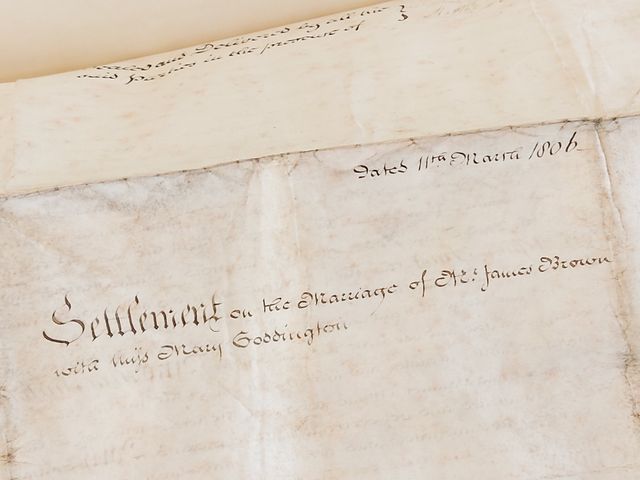 Sealed and Delivered by all the
said Parties in the presence of
Dated 11th March 1806
Settlement on the Marriage of Mr. James Brown
with Miss Mary Goddington